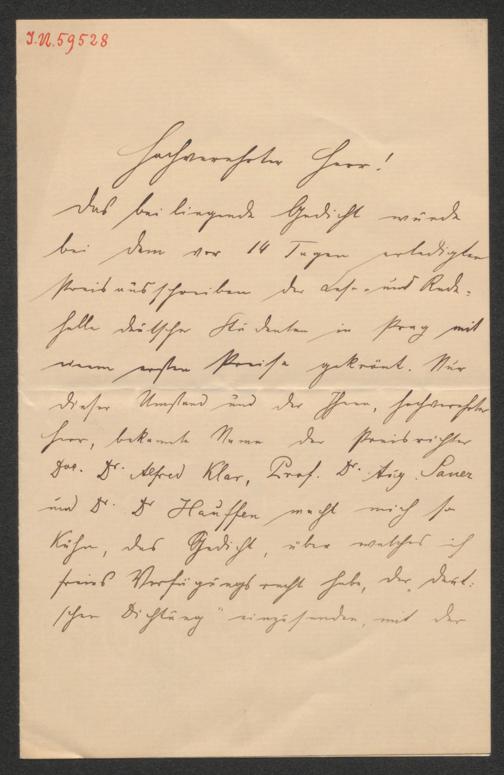 J.N. 59528
Hochverehrter Herr!
Das beiliegende Gedicht wurde
bei dem vor 14 Tagen erledigten
Preisausschreiben der Lese- und Rede-
halle deutscher Studenten in Prag mit
einem ersten Preise gekrönt. Nur
dieser Umstand und der Ihnen, hochverehrter
Herr, bekannte Name der Preisrichter
Doc. Dr. Alfred Klar, Prof. Dr. Aug. Sauer
und Dr. Hauffen macht mich so
kühn, das Gedicht, über welches ich
freies Verfügungsrecht habe, der „Deut-
schen Dichtung" einzusenden, mit der